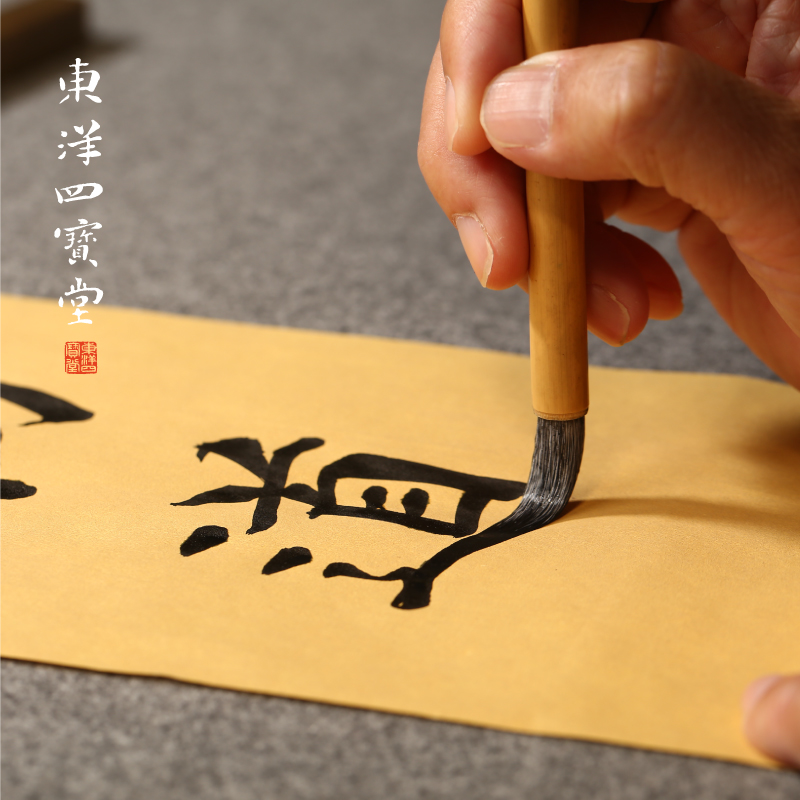 東洋四寶堂
東洋四
寶堂
道